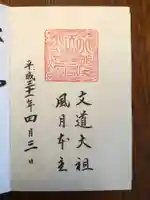 文道大祖
風月本主
平成三十一年四月三日